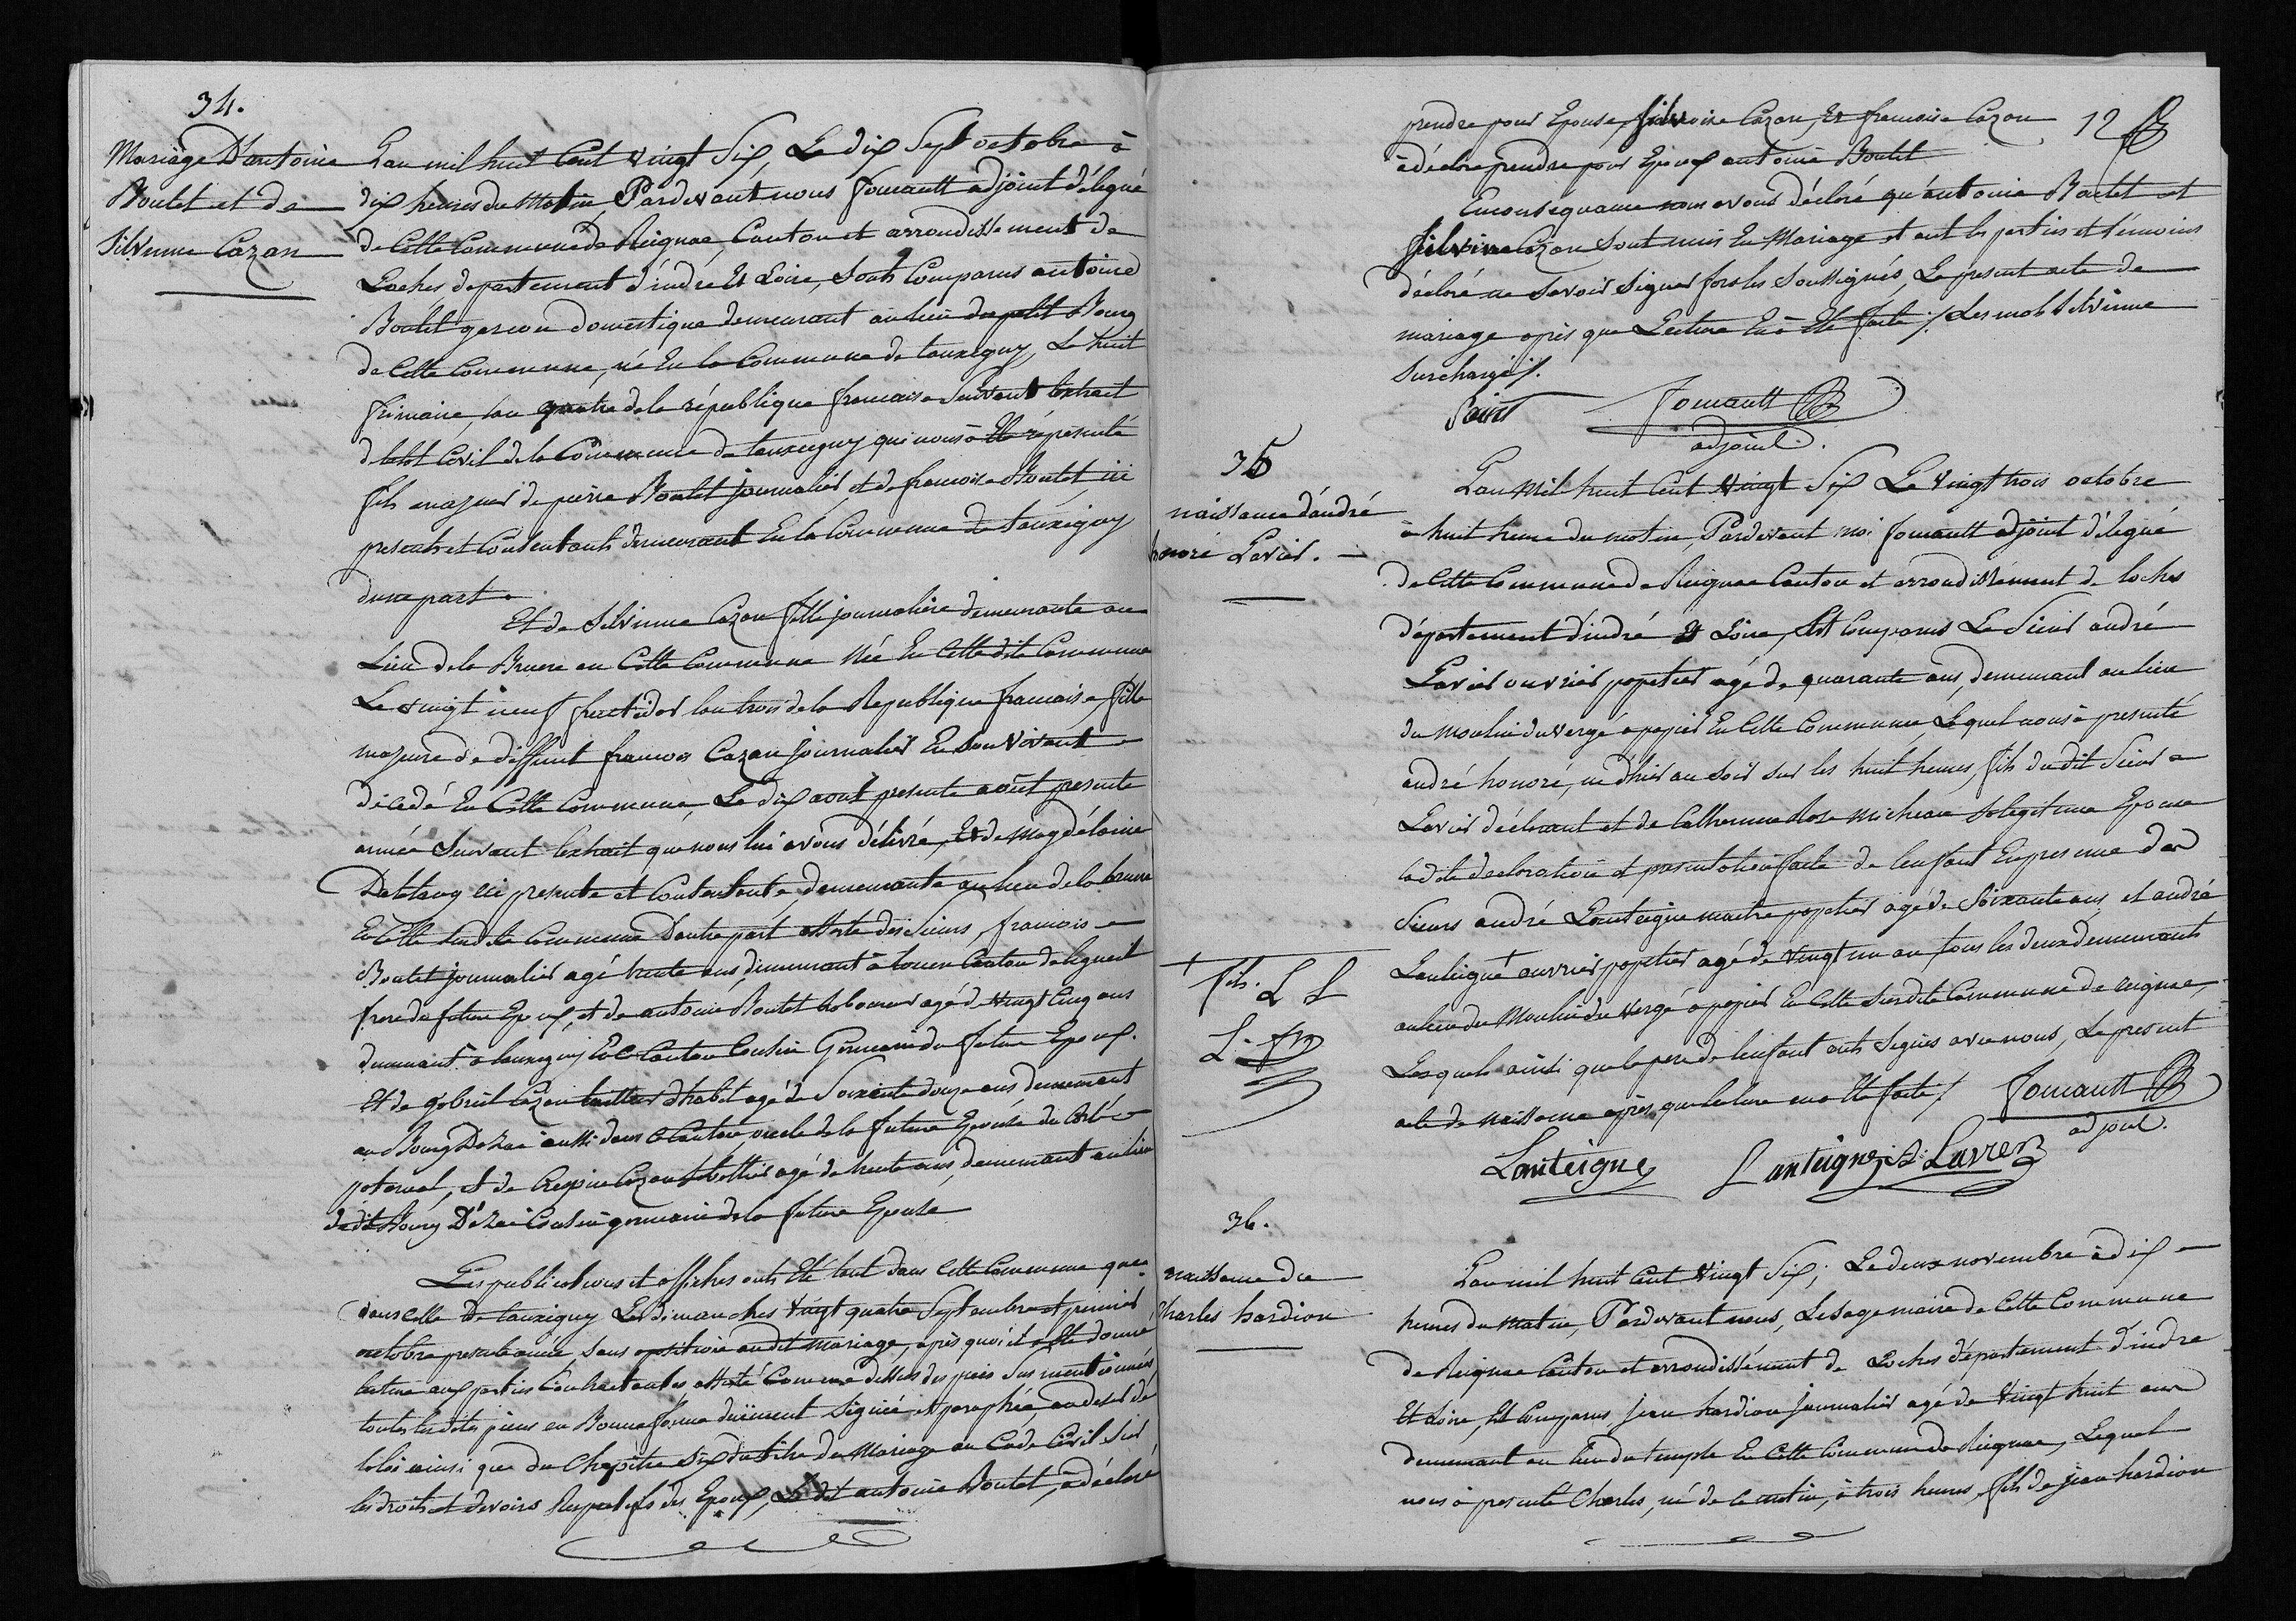 34.
Mariage D'antoine
Boutet et de
Silvinne Cazan
L'an mil huit Cent vingt Six, Le dix Sept octobre à
dix heures du Matin, Pardevant nous fouault adjoint délégué
de Cette Commune de Reignac, Canton et arrondissement de
Loches departement d'indre Et Loire, sonts Comparus antoine
Boutet garcon domestique demeurant au lieu du petit Bourg
de Cette Commune, né En la Commune de tauxigny, Le huit
frimaire, lan quatre de la république francaise Suivant lextrait
de letat Civil de la Commune de tauxigny qui nous à Eté réprésenté
fils majeur de pierre Boutet journalier et de francoise Boutet, ici
presents et Consentants demeurant En la Commune de tauxigny
dune part.
Et de Silvinne Cazan fille journalière demeurante au
Lieu de la Bruere en Cette Commune Née En Cette dite Commune
Le vingt neuf fructidor lan trois de la Republique francaise, fille
majeure de deffunt francois Cazan journalier En Son Vivant
décédé En Cette Commune, Le dix aout presente août presente
année Suivant lextrait que nous lui avons délivré, Et de magdelaine
Deletang ici presente et Consentante, demeurante au lieu de la bruere
En Cette susdite Commune Dautre part assisté des Sieurs, francois
Boutet journalier agé trente ans, demeurant à louan Canton de ligueil
frere du futur Epoux, et de antoine Boutet laboureur agé de vingt Cinq ans
demeurant à tauxigny Ee Canton Cousin Germain du futur Epoux.
Et de gabriel Cazan tailleur d'habit agé de Soixante douze ans demeurant
au Bourg Dazai aussi dans ce Canton oncle de la future Epouse du Coté
paternel, et de Crespin Cazan Sabottier agé de trente ans, demeurant au lieu
dudit Bourg D'azai Cousin germain de la future Epouse
Les publications et affiches onts Eté tant dans Cette Commune que
dans celle de tauxigny Les dimanches vingt quatre Septembre et premier
octobre presente année, sans opposition audit mariage, après quoi il a Eté donné
lecture aux parties Contractantes assisté Comme dessus des pieces sus mentionnées
toutes lesdites pieces en Bonne forme duement signée et paraphée au desir de
la loi ainsi que du Chapitre Six du titre du Mariage au Code Civil sur
les droits et devoirs Respectifs des Epoux, Le dit antoine Boutet, à déclaré
prendre pour Epouse, Silvoine Cazan, Et francoise Cazan 12
à déclaré prendre pour Epoux antoine Boutet
En consequance nous avons déclaré qu'antoine Boutet et
Silvinne Cazan Sont unis En Mariage et ont les parties et témoins
déclaré ne Savoir Signer fors les Soussignés, Le present acte de
mariage après que Lecture En à Eté faite ./. Les mots Silvinne
Surchargés ./.
Saint Fouault
adjoint.
35
naissance d'andré
honoré Lavier.
L'an Mil huit Cent Vingt Six Le Vingt trois octobre
à huit heure du matin, Pardevant Moi fouault adjoint délegué
de Cette Commune de Reignac Canton et arrondissement de loches
département d'indre Et Loire, Est Comparus Le Sieur andré
Lavier ouvrier papetier agé de quarante ans, demeurant au lieu
du Moulin du Vergé a papier En Cette Commune, Lequel nous à presenté
andré honoré, né d'hier au Soir sur les huit heures, fils du dit Sieur
Lavier déclarant et de Catherinne Rose Micheau Sa legitime Epouse
ladite declaration et presentation faite de lenfant En presence des
Sieurs andré Lanteigne maitre papetier agé de Soixante ans, et andré
Lanteigne† ouvrier papetier agé de Vingt un an tous les deux demeurants
au lieu du Moulin du Vergé a papier En Cette Susdite Commune de reignac,
Lesquels ainsi que le pere de lenfant onts Signés avec nous, Le present
acte de Naissance après que lecture en a Eté faite ./. Fouault
adjoint.
† fils.
L L
Lanteigne Lanteigne A. Lavier
36.
naissance de
Charles hardion
L'an mil huit Cent Vingt Six; Le deux novembre à dix
heures du matin, Pardevant nous, Lesage maire de Cette Commune
de Reignac Canton et arrondissement de Loches département d'indre
Et Loire, Est Comparus, Jean hardion journalier agé de Vingt huit ans
demeurant au lieu du temple En Cette Commune de Reignac, Lequel
nous à presenté Charles, né de ce matin, à trois heures, fils de jean hardion